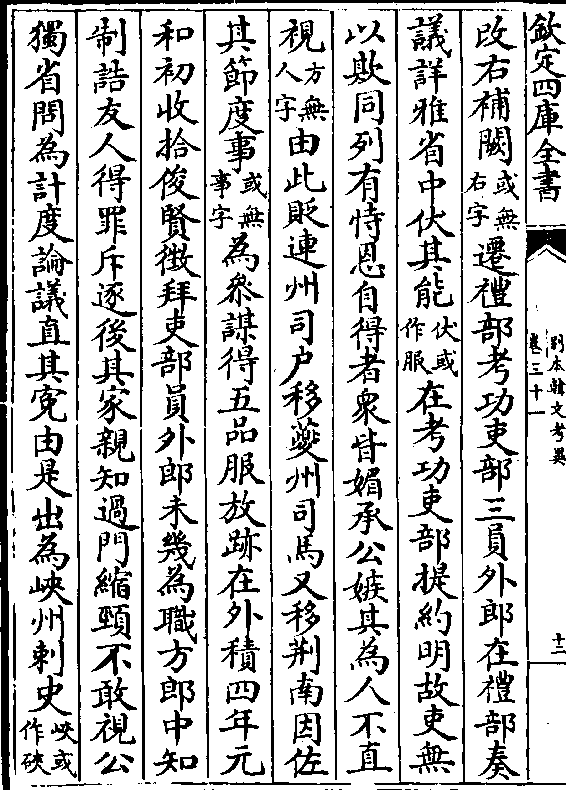 欽定四庫全書
別本韓文考異
卷三十一
十二
改右補闕或無右字遷禮部考功吏部三員外郎在禮部奏
議詳雅省中伏其能伏或作服在考功吏部提約明故吏無
以欺同列有恃恩自得者衆皆媚承公嫉其為人不直
視方無人字由此貶連州司户移夔州司馬又移荆南因佐
其節度事或無事字為叅謀得五品服放跡在外積四年元
和初收拾俊賢徴拜吏部員外郎未幾為職方郎中知
制誥友人得罪斥逐後其家親知過門縮頸不敢視公
獨省問為計度論議直其寃由是出為峽州刺史峽或作硤